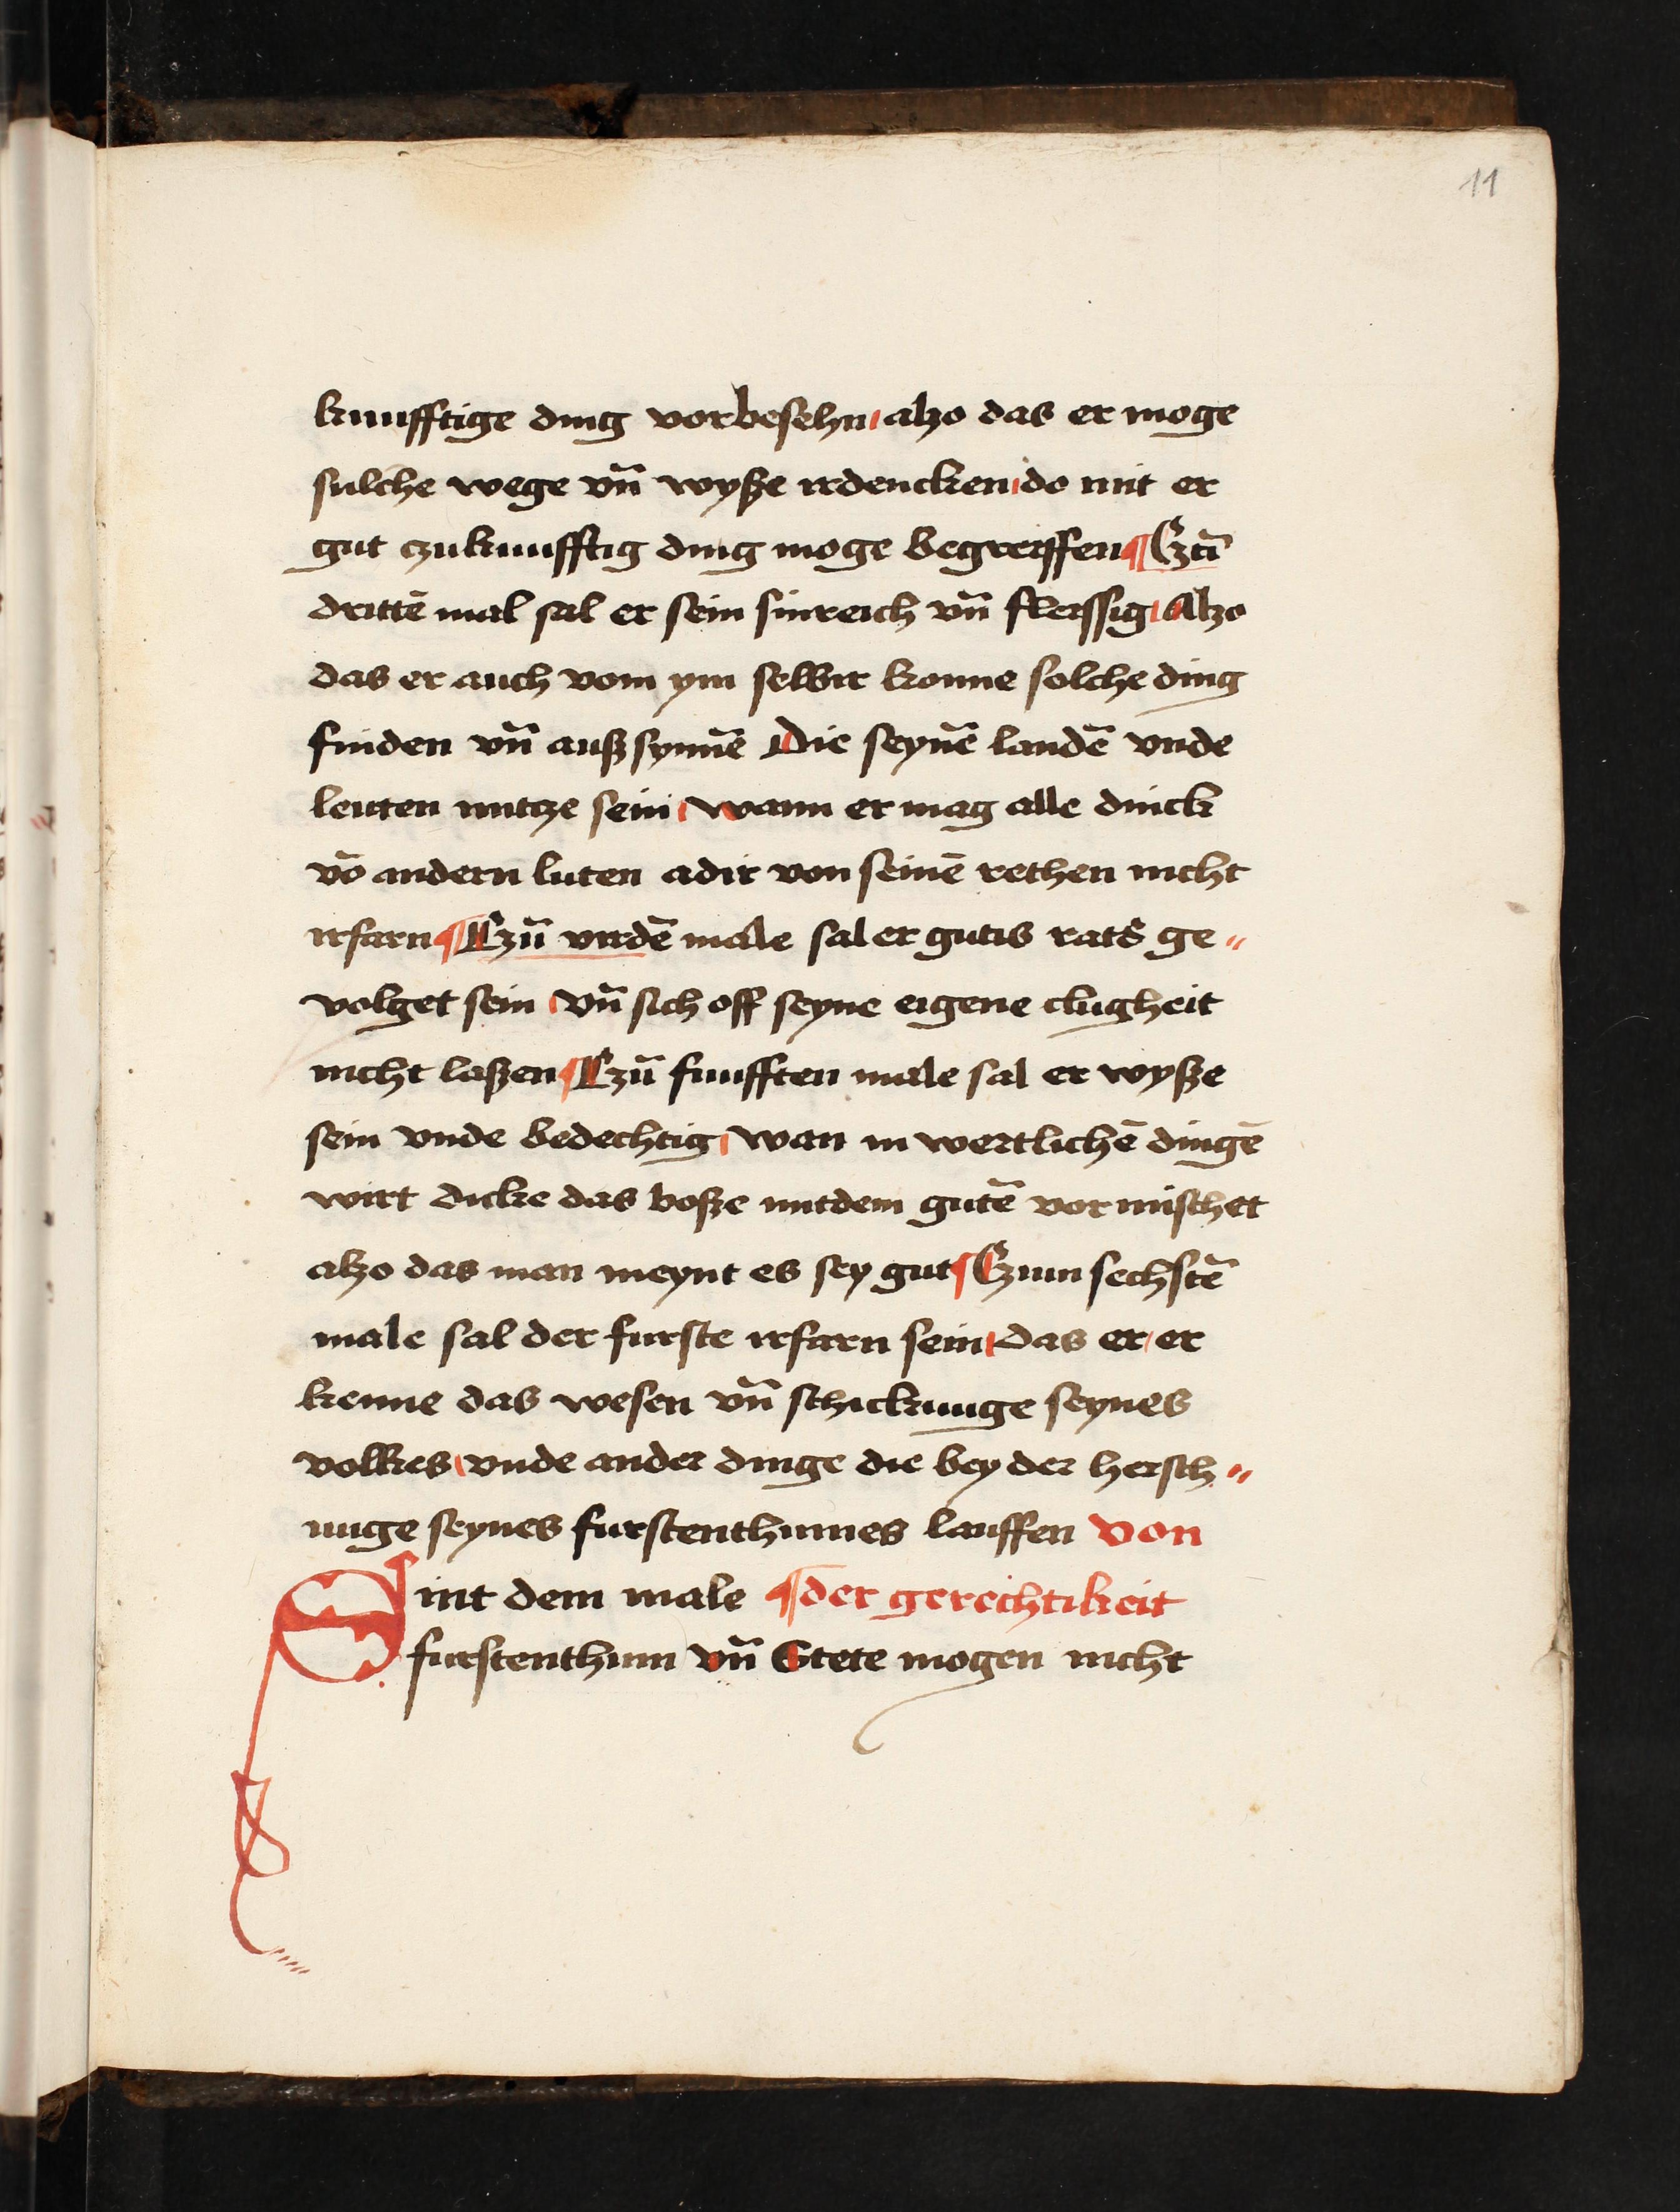 11
kunfftige ding vorbesehn alzo das er moge
sulche wege vn̄ wyße irdencken do mit er
gut czukunfftig ding moge begreiffen ¶ Czū
drittē mal sal er sein sinreich vn̄ fleissig Alzo
das er auch vom ym selbir konne solche ding
finden vn̄ außsynnē Die seynē landē vnde
leuten nutcze sein wann er mag alle dinck
vō andern luten adir von seinē rethen nicht
irfarn ¶ Czū virdē male sal er gutis ratß ge〃
volget sein vn̄ sich off seyne eigene clugheit
nicht laßen ¶ Czū funfften male sal er wyße
sein vnde bedechtig wan in wertlichē dingē
wirt dicke das boße mitdem gutē vormischet
alzo das man meynt es sey gut ¶ Czum sechstē
male sal der furste irfarn sein das er er
kenne das wesen vn̄ schickunge seynes
volkes vnde ander dinge die bey der hersch〃
unge seynes furstenthumes lauffen von
Sint dem male ¶ der gerechtikeit
furstenthum vn̄ Stete mogen nicht